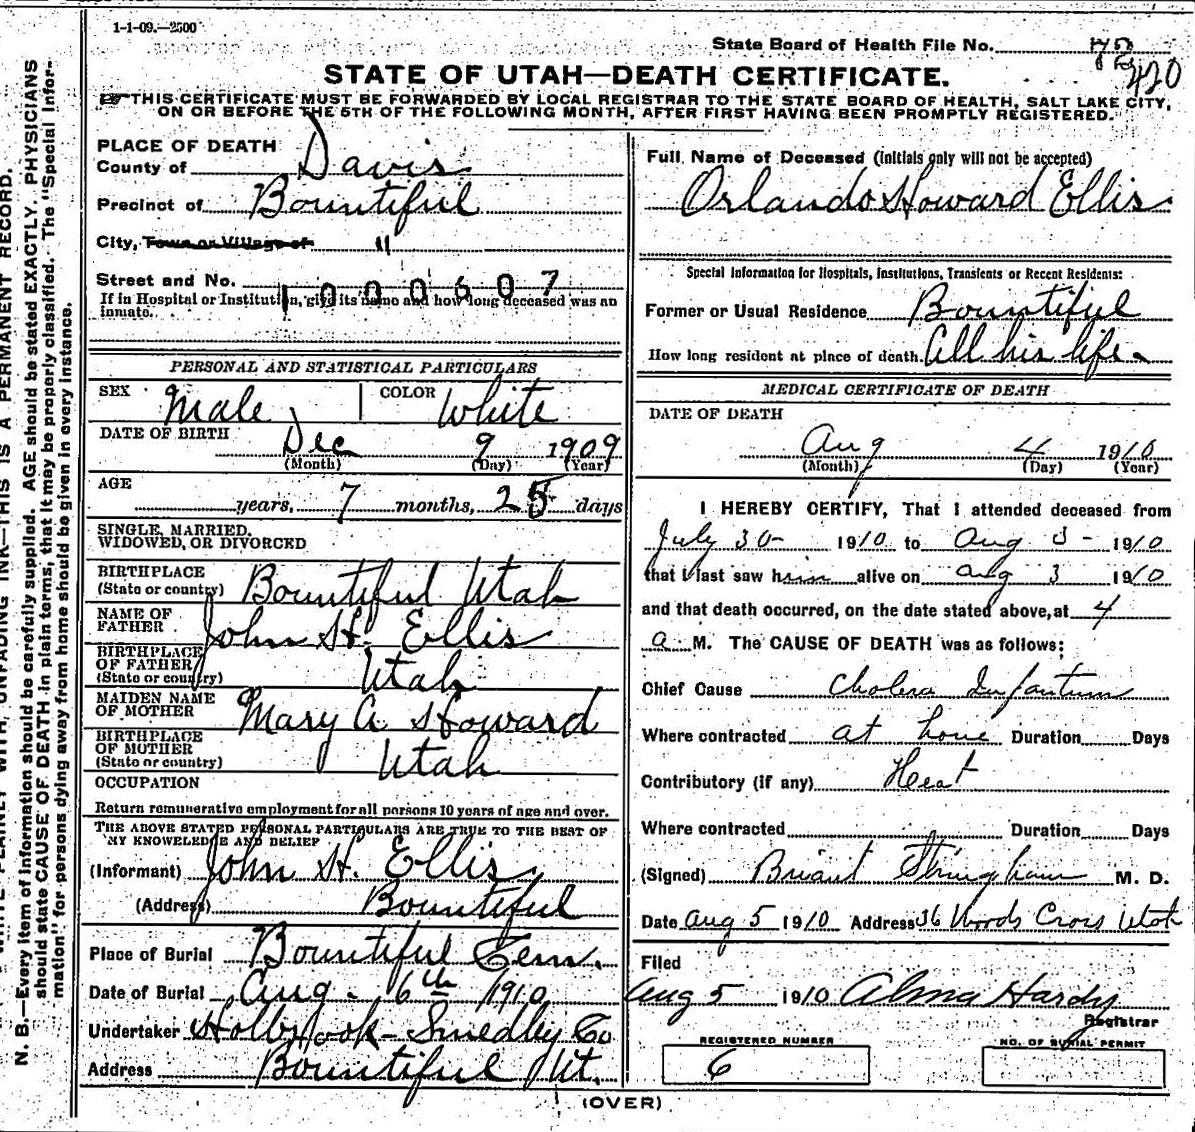 1-1-09.—2500
State Board of Health File No.
420
STATE OF UTAH—DEATH CERTIFICATE.
THIS CERTIFICATE MUST BE FORWARDED BY LOCAL REGISTRAR TO THE STATE BOARD OF HEALTH, SALT LAKE CITY,
ON OR BEFORE THE 5TH OF THE FOLLOWING MONTH, AFTER FIRST HAVING BEEN PROMPTLY REGISTERED.
PLACE OF DEATH
County of Davis
Precinct of Bountiful
City, Town or Village of "
Street and No.
1000607
If in Hospital or Institution, give its name and how long deceased was an
inmate.
PERSONAL AND STATISTICAL PARTICULARS
SEX Male COLOR White
DATE OF BIRTH Dec 9 1909
(Month) (Day) (Year)
AGE
years, 7 months, 25 days
SINGLE, MARRIED,
WIDOWED, OR DIVORCED
BIRTHPLACE
(State or country) Bountiful Utah
NAME OF
FATHER John H. Ellis
BIRTHPLACE
OF FATHER
(State or country) Utah
MAIDEN NAME
OF MOTHER Mary A Howard
BIRTHPLACE
OF MOTHER
(State or country) Utah
OCCUPATION
Return remunerative employment for all persons 10 years of age and over.
THE ABOVE STATED PERSONAL PARTICULARS ARE TRUE TO THE BEST OF
MY KNOWELEDGE AND BELIEF
(Informant) John H. Ellis,
(Address) Bountiful
Place of Burial Bountiful Cem.
Date of Burial Aug. 6th 1910
Undertaker Holbrook-Smedley Co
Address Bountiful Ut.
Full Name of Deceased (initials only will not be accepted)
Orlando Howard Ellis.
Special Information for Hospitals, Institutions, Transients or Recent Residents:
Former or Usual Residence Bountiful
How long resident at place of death. All his life.
MEDICAL CERTIFICATE OF DEATH
DATE OF DEATH
Aug 4 1910
(Month) (Day) (Year)
I HEREBY CERTIFY, That I attended deceased from
July 30- 1910 to Aug 3- 1910
that I last saw him alive on Aug 3 1910
and that death occurred, on the date stated above, at 4
a M. The CAUSE OF DEATH was as follows:
Chief Cause Cholera Infantum
Where contracted at home Duration Days
Contributory (if any) Heat
Where contracted Duration Days
(Signed) Briant Stringham M. D.
Date Aug 5 1910 Address 36 Woods Cross Utah
Filed
Aug 5 1910 Alma Hardy
Registrar
REGISTERED NUMBER
6
NO. OF BURIAL PERMIT
(OVER)
WRITE PLAINLY WITH UNFADING INK—THIS IS A PERMANENT RECORD.
N. B.—Every item of information should be carefully supplied. AGE should be stated EXACTLY. PHYSICIANS
should state CAUSE OF DEATH in plain terms, that it may be properly classified. The "Special Infor-
mation" for persons dying away from home should be given in every instance.